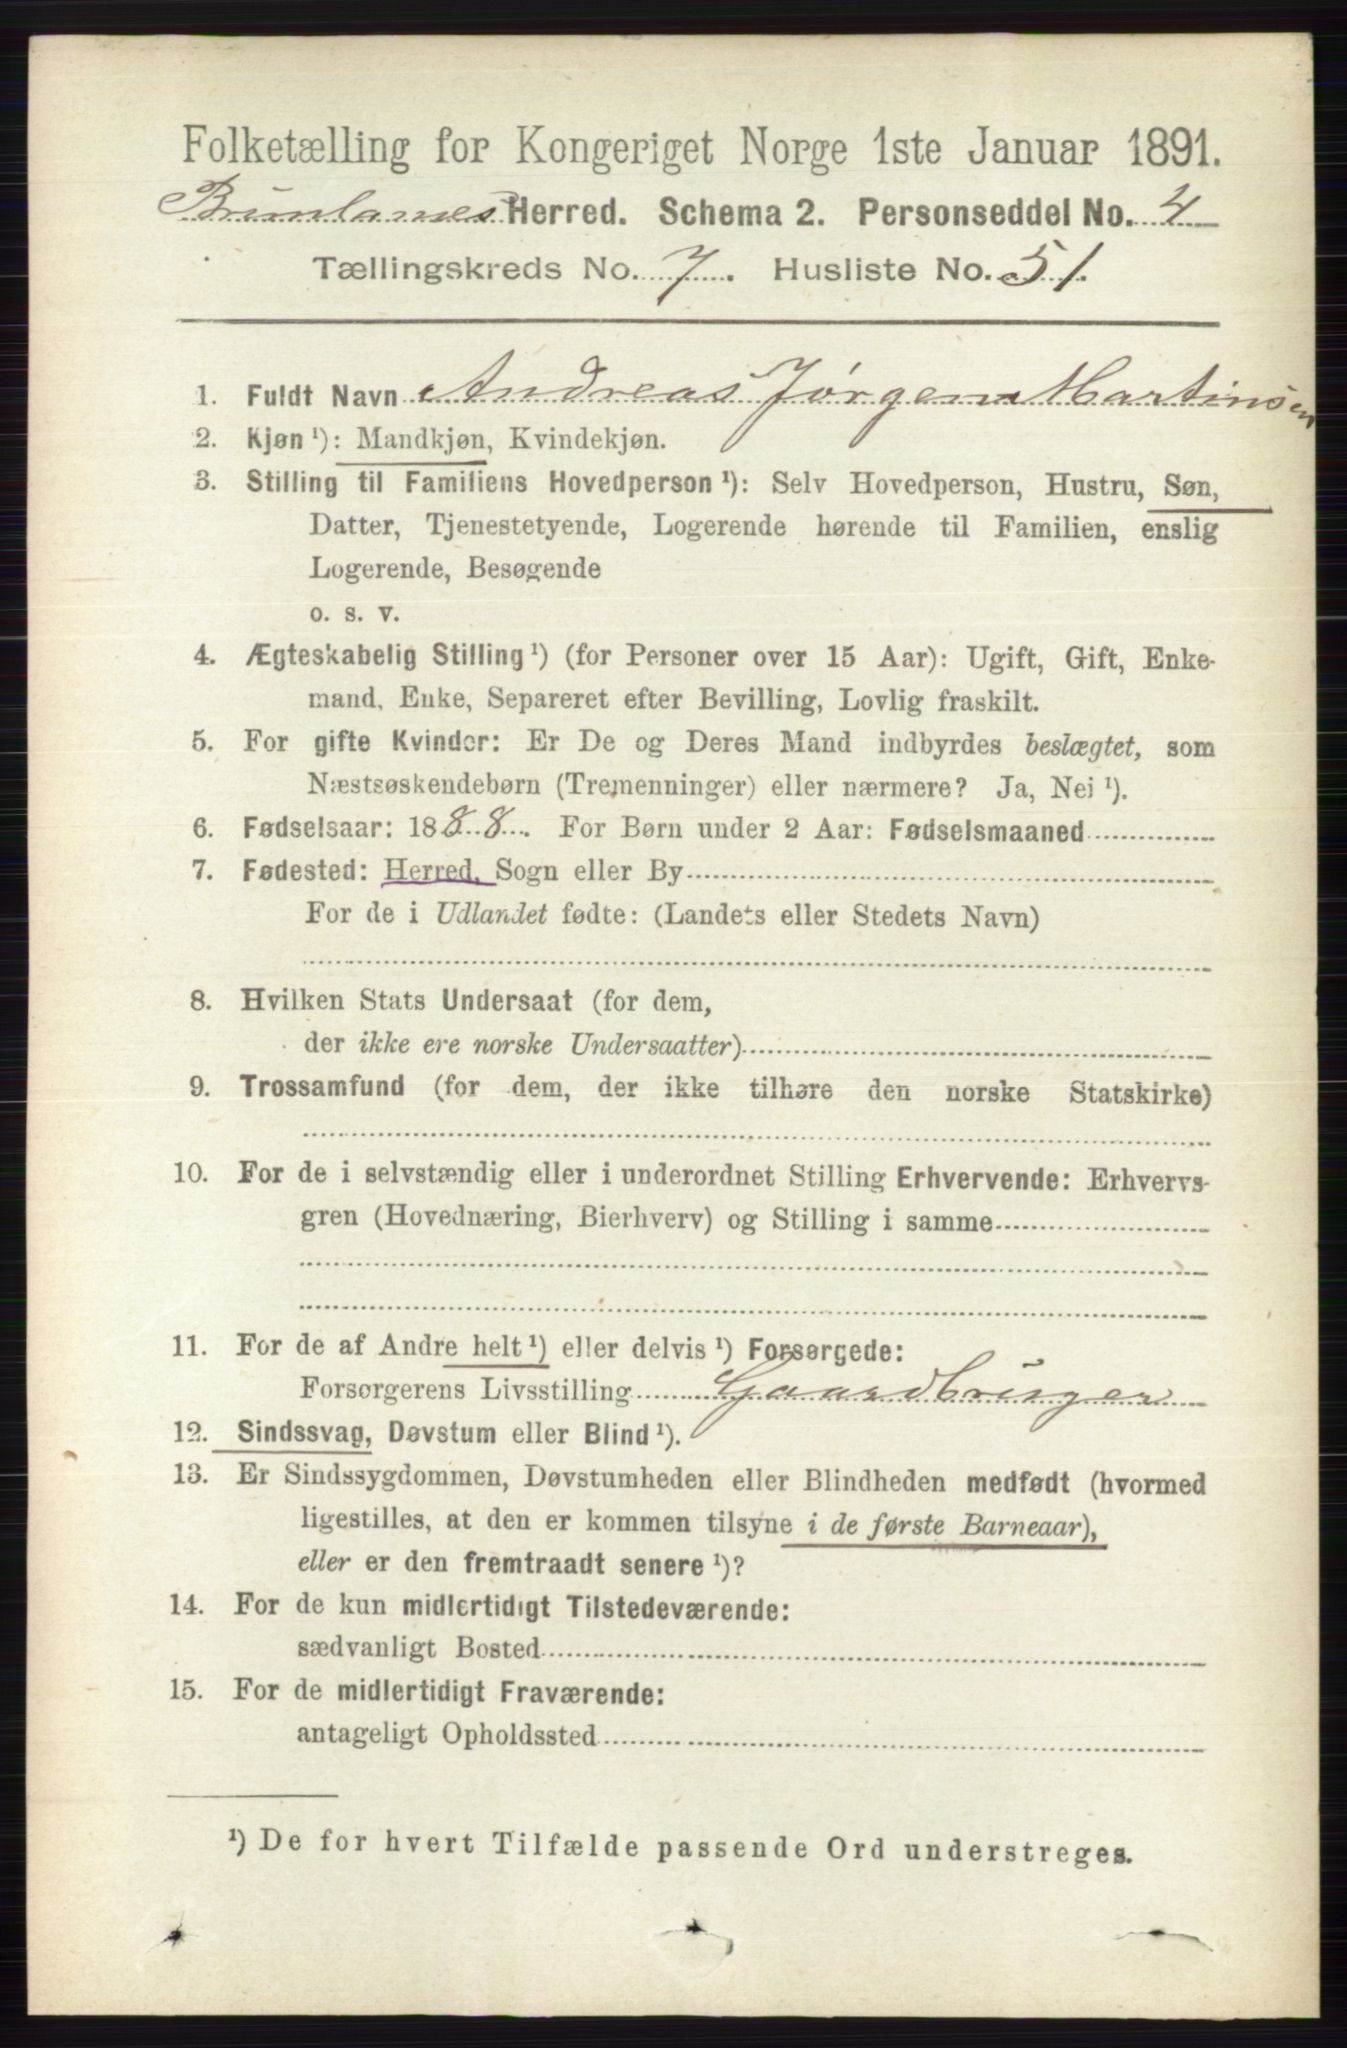 Folketælling for Kongeriget Norge 1ste Januar 1891.
Brunlanes Herred. Schema 2. Personseddel No. 4
Tællingskreds No. 7. Husliste No. 51.
1. Fuldt Navn Andreas Jørgen Martinsen
2. Kjøn ¹): Mandkjøn, Kvindekjøn.
3. Stilling til Familiens Hovedperson ¹): Selv Hovedperson, Hustru, Søn,
Datter, Tjenestetyende, Logerende hørende til Familien, enslig
Logerende, Besøgende
o. s. v.
4. Ægteskabelig Stilling ¹) (for Personer over 15 Aar): Ugift, Gift, Enke-
mand, Enke, Separeret efter Bevilling, Lovlig fraskilt.
5. For gifte Kvinder: Er De og Deres Mand indbyrdes beslægtet, som
Næstsøskendebørn (Tremenninger) eller nærmere? Ja, Nei ¹).
6. Fødselsaar: 1888. For Børn under 2 Aar: Fødselsmaaned
7. Fødested: Herred, Sogn eller By
For de i Udlandet fødte: (Landets eller Stedets Navn)
8. Hvilken Stats Undersaat (for dem,
der ikke ere norske Undersaatter)
9. Trossamfund (for dem, der ikke tilhøre den norske Statskirke)
10. For de i selvstændig eller i underordnet Stilling Erhvervende: Erhvervs-
gren (Hovednæring, Bierhverv) og Stilling i samme
11. For de af Andre helt ¹) eller delvis ¹) Forsørgede:
Forsørgerens Livsstilling Gaardbruger
12. Sindssvag, Døvstum eller Blind ¹).
13. Er Sindssygdommen, Døvstumheden eller Blindheden medfødt (hvormed
ligestilles, at den er kommen tilsyne i de første Barneaar),
eller er den fremtraadt senere ¹)?
14. For de kun midlertidigt Tilstedeværende:
sædvanligt Bosted
15. For de midlertidigt Fraværende:
antageligt Opholdssted
¹) De for hvert Tilfælde passende Ord understreges.